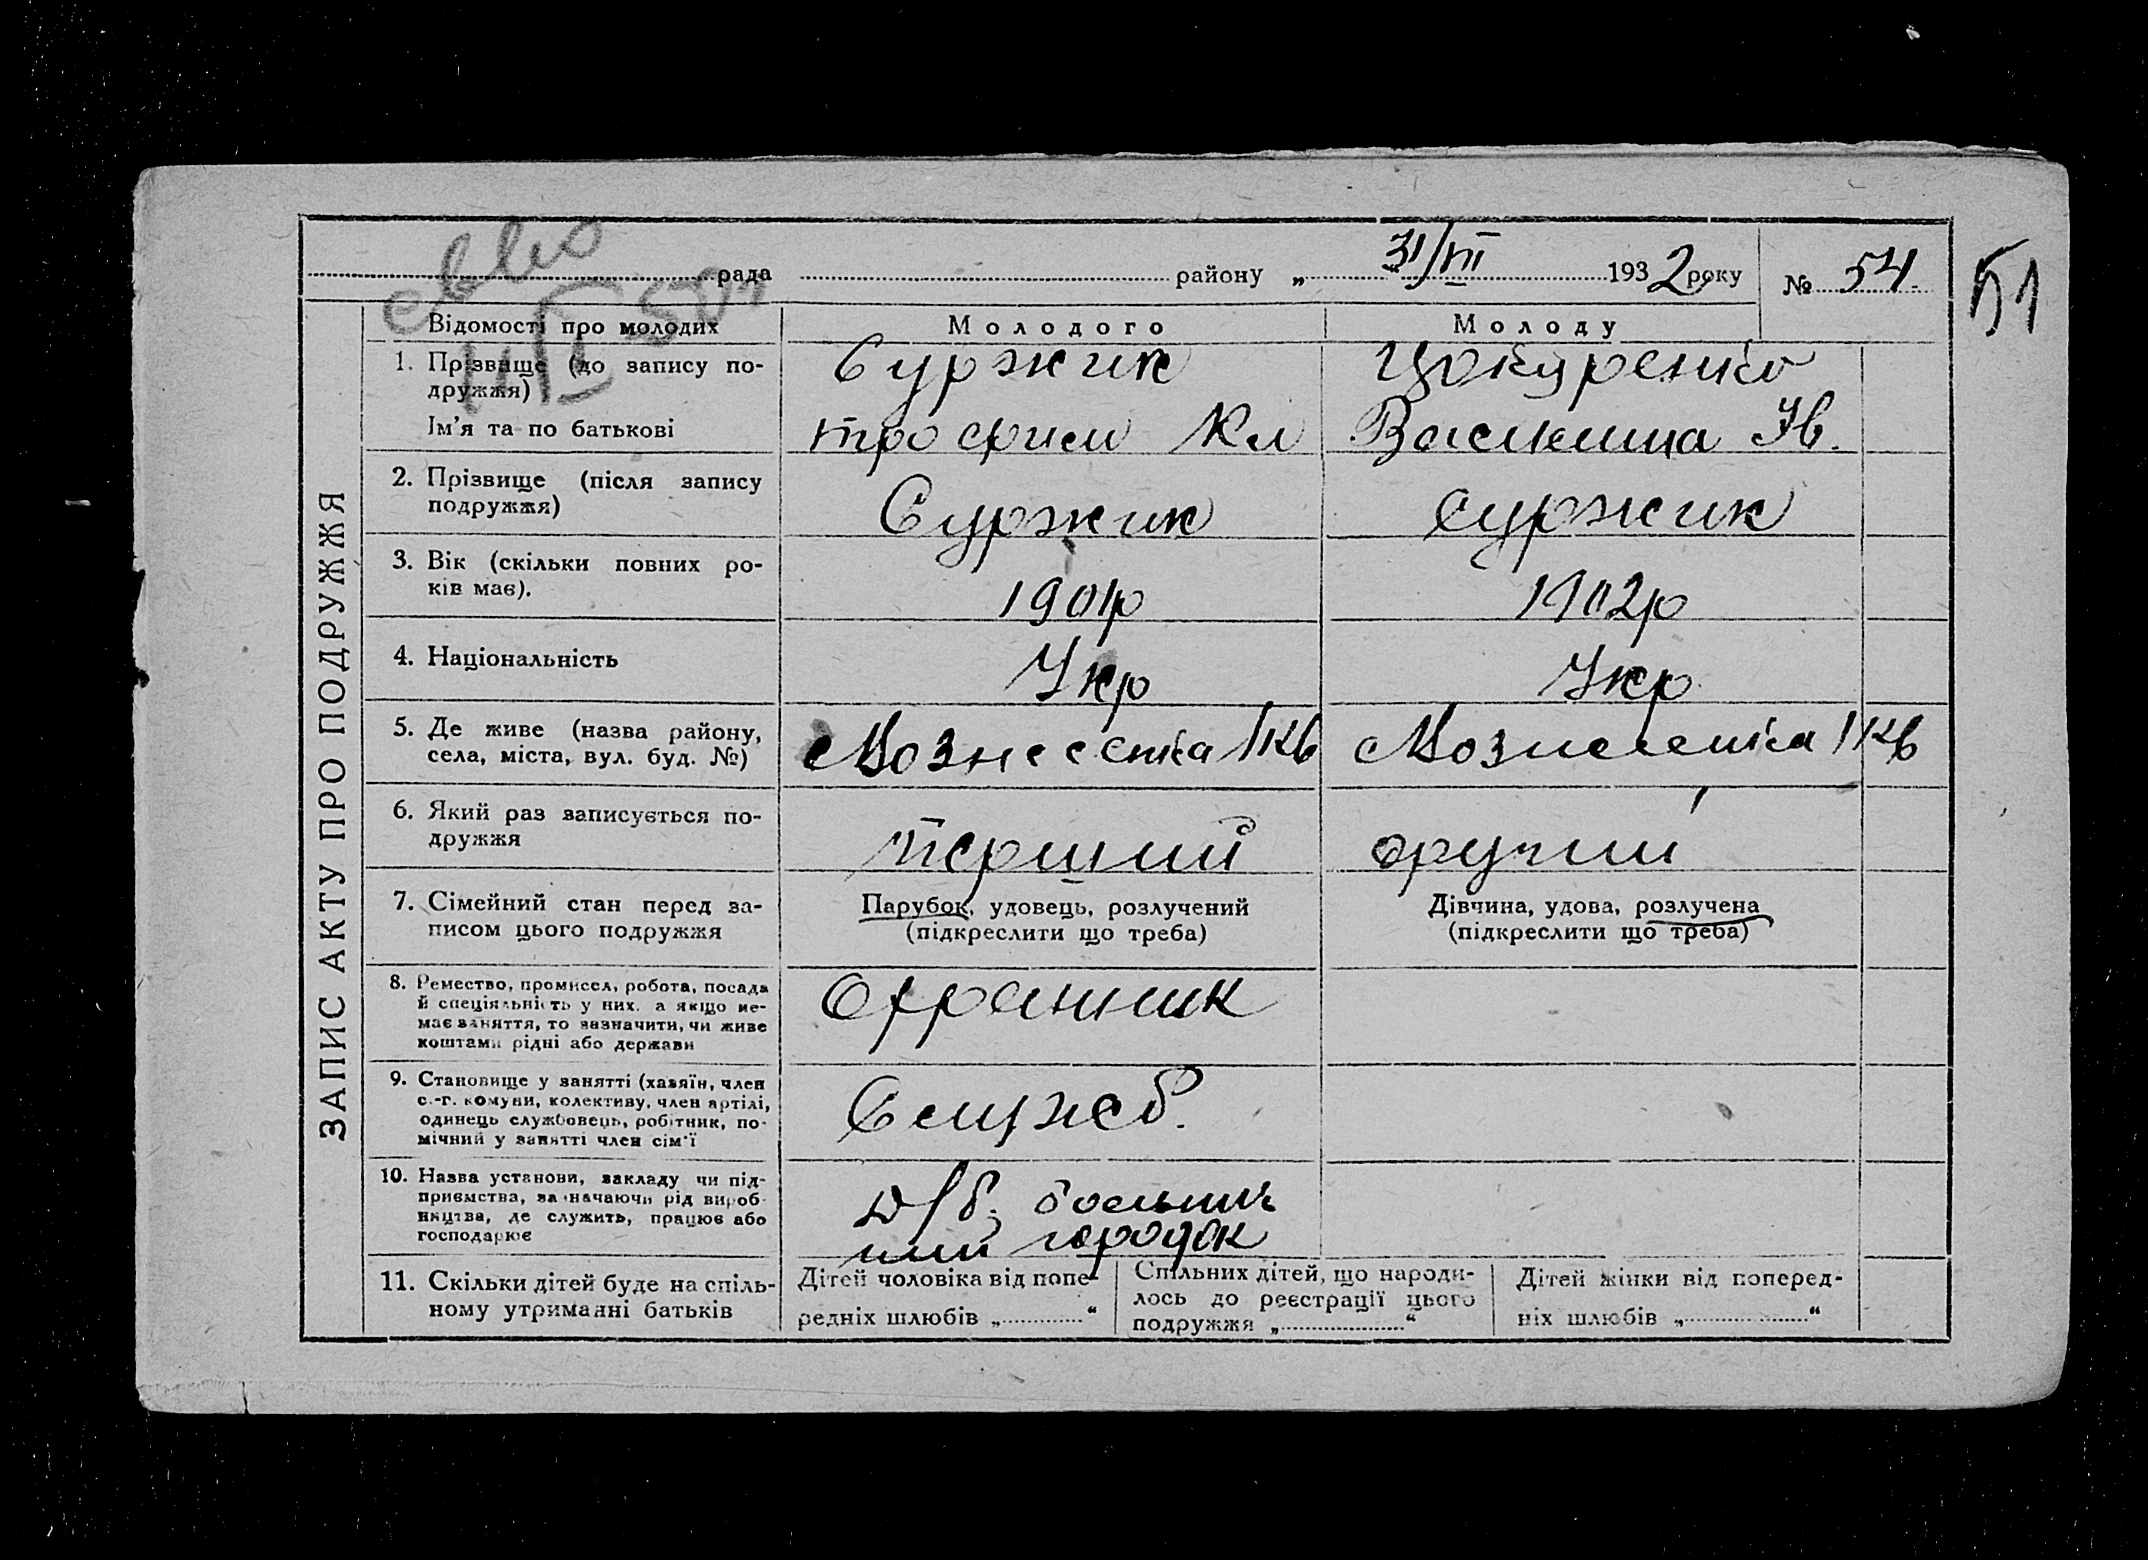 рада району „ 31/VII 1932 року № 54.
51
ЗАПИС АКТУ ПРО ПОДРУЖЖЯ
Відомості про молодих
Молодого
Молоду
1. Прізвище (до запису по-
дружжя)
Ім'я та по батькові
Суржик
Трофим Кл
Цокуренко
Василина Ів.
2. Прізвище (після запису
подружжя)
Суржик
Суржик
3. Вік (скільки повних ро-
ків має).
1901р
1902р
4. Національність
Укр
Укр
5. Де живе (назва району,
села, міста, вул. буд. №)
Вознесенка 1 кв
Вознесенка 1 кв
6. Який раз записується по-
дружжя
перший
другий
7. Сімейний стан перед за-
писом цього подружжя
Парубок, удовець, розлучений
(підкреслити що треба)
Дівчина, удова, розлучена
(підкреслити що треба)
8. Ремество, промисел, робота, посада
й спеціяльність у них, а якщо не-
має заняття, то зазначити, чи живе
коштами рідні або держави
Охранник
9. Становище у занятті (хазяїн, член
с.-г. комуни, колективу, член артілі,
одинець службовець, робітник, по-
мічний у занятті член сім'ї
Служб.
10. Назва установи, закладу чи під-
приємства, зазначаючи рід вироб-
ництва, де служить, працює або
господарює
городок
11. Скільки дітей буде на спіль-
ному утриманні батьків
Дітей чоловіка від попе-
редніх шлюбів „ “
Спільних дітей, що народи-
лось до реєстрації цього
подружжя „ “
Дітей жінки від поперед-
ніх шлюбів „ “